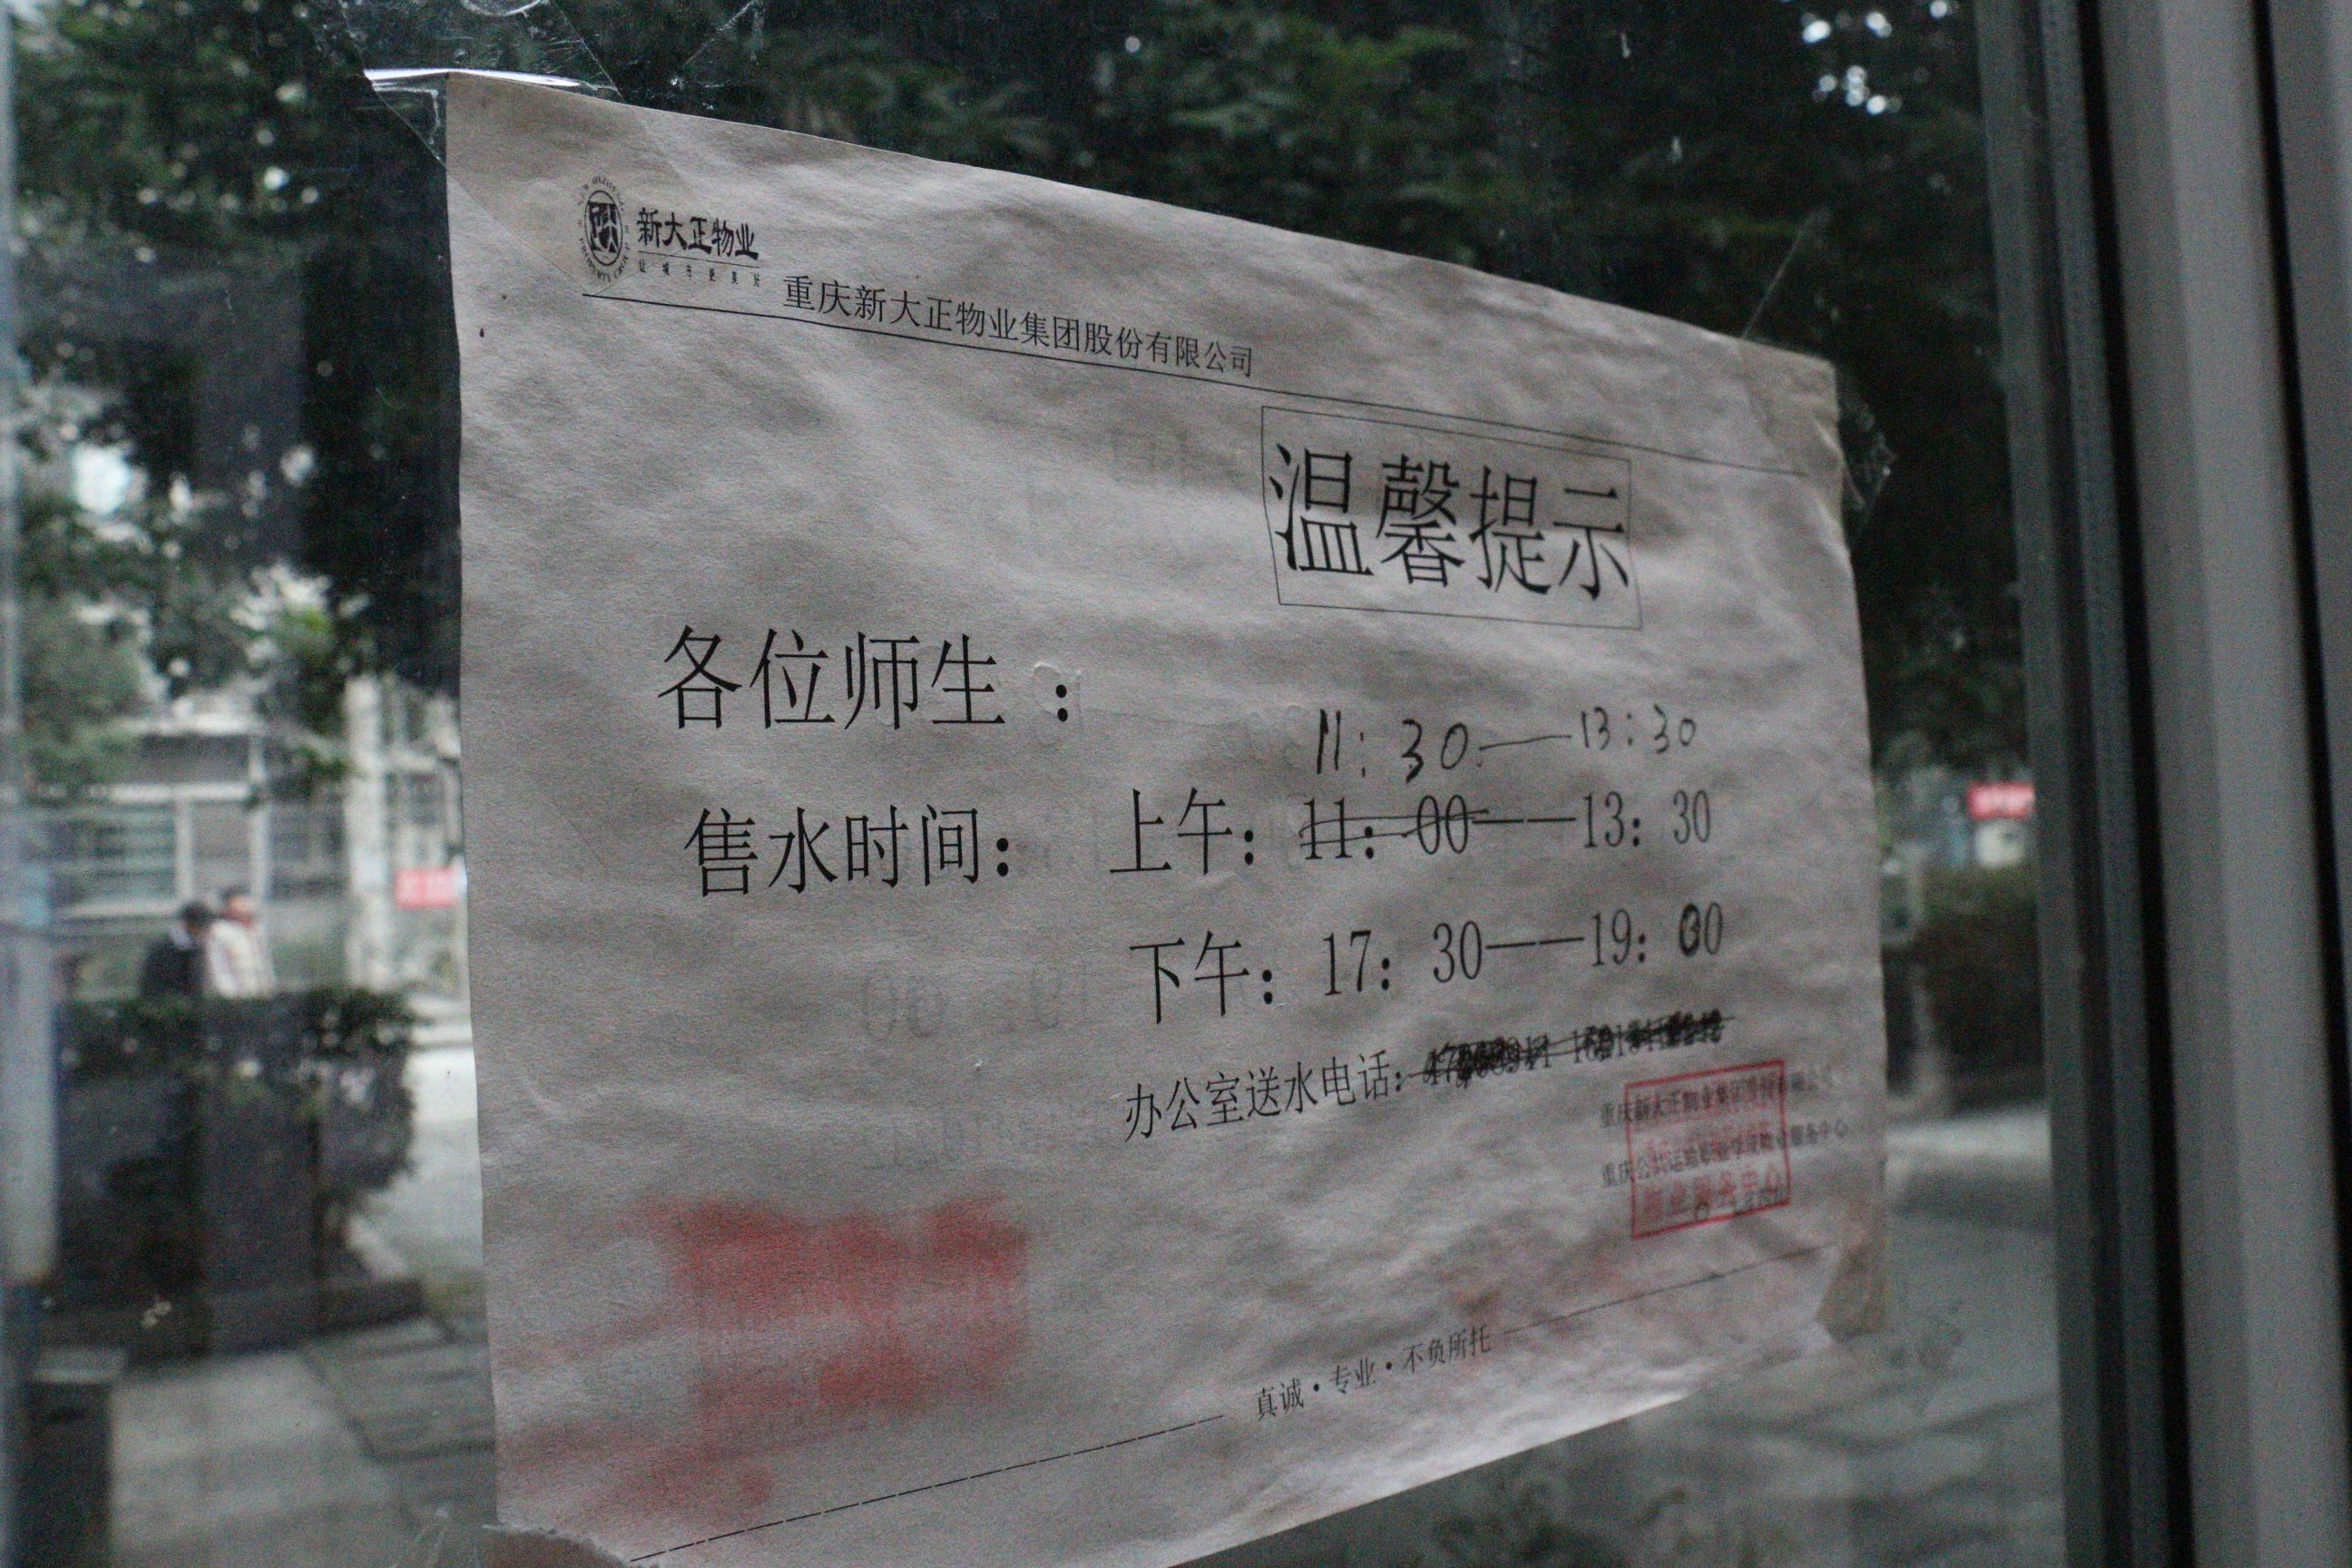 新大正物业
让城市更美好
重庆新大正物业集团股份有限公司
温馨提示
各位师生：
11:30——13:30
售水时间：上午：11：00——13：30
下午：17：30——19：00
办公室送水电话：
重庆新大正物业集团股份有限公司
物业服务中心
真诚·专业·不负所托